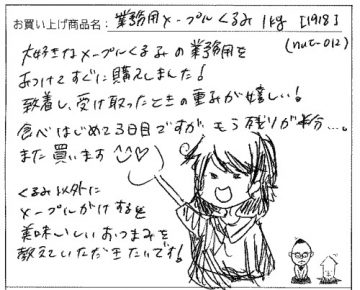 お買い上げ商品名: 業務用メープルくるみ 1kg [1918]
(nut-012)
大好きなメープルくるみの業務用を
みつけてすぐに購入しました!
到着し、受け取ったときの重みが嬉しい!
食べはじめて3日目ですが、もう残りが半分…。
また買います
くるみ以外に
メープルがけすると
美味しいおつまみを
教えていただきたいです!